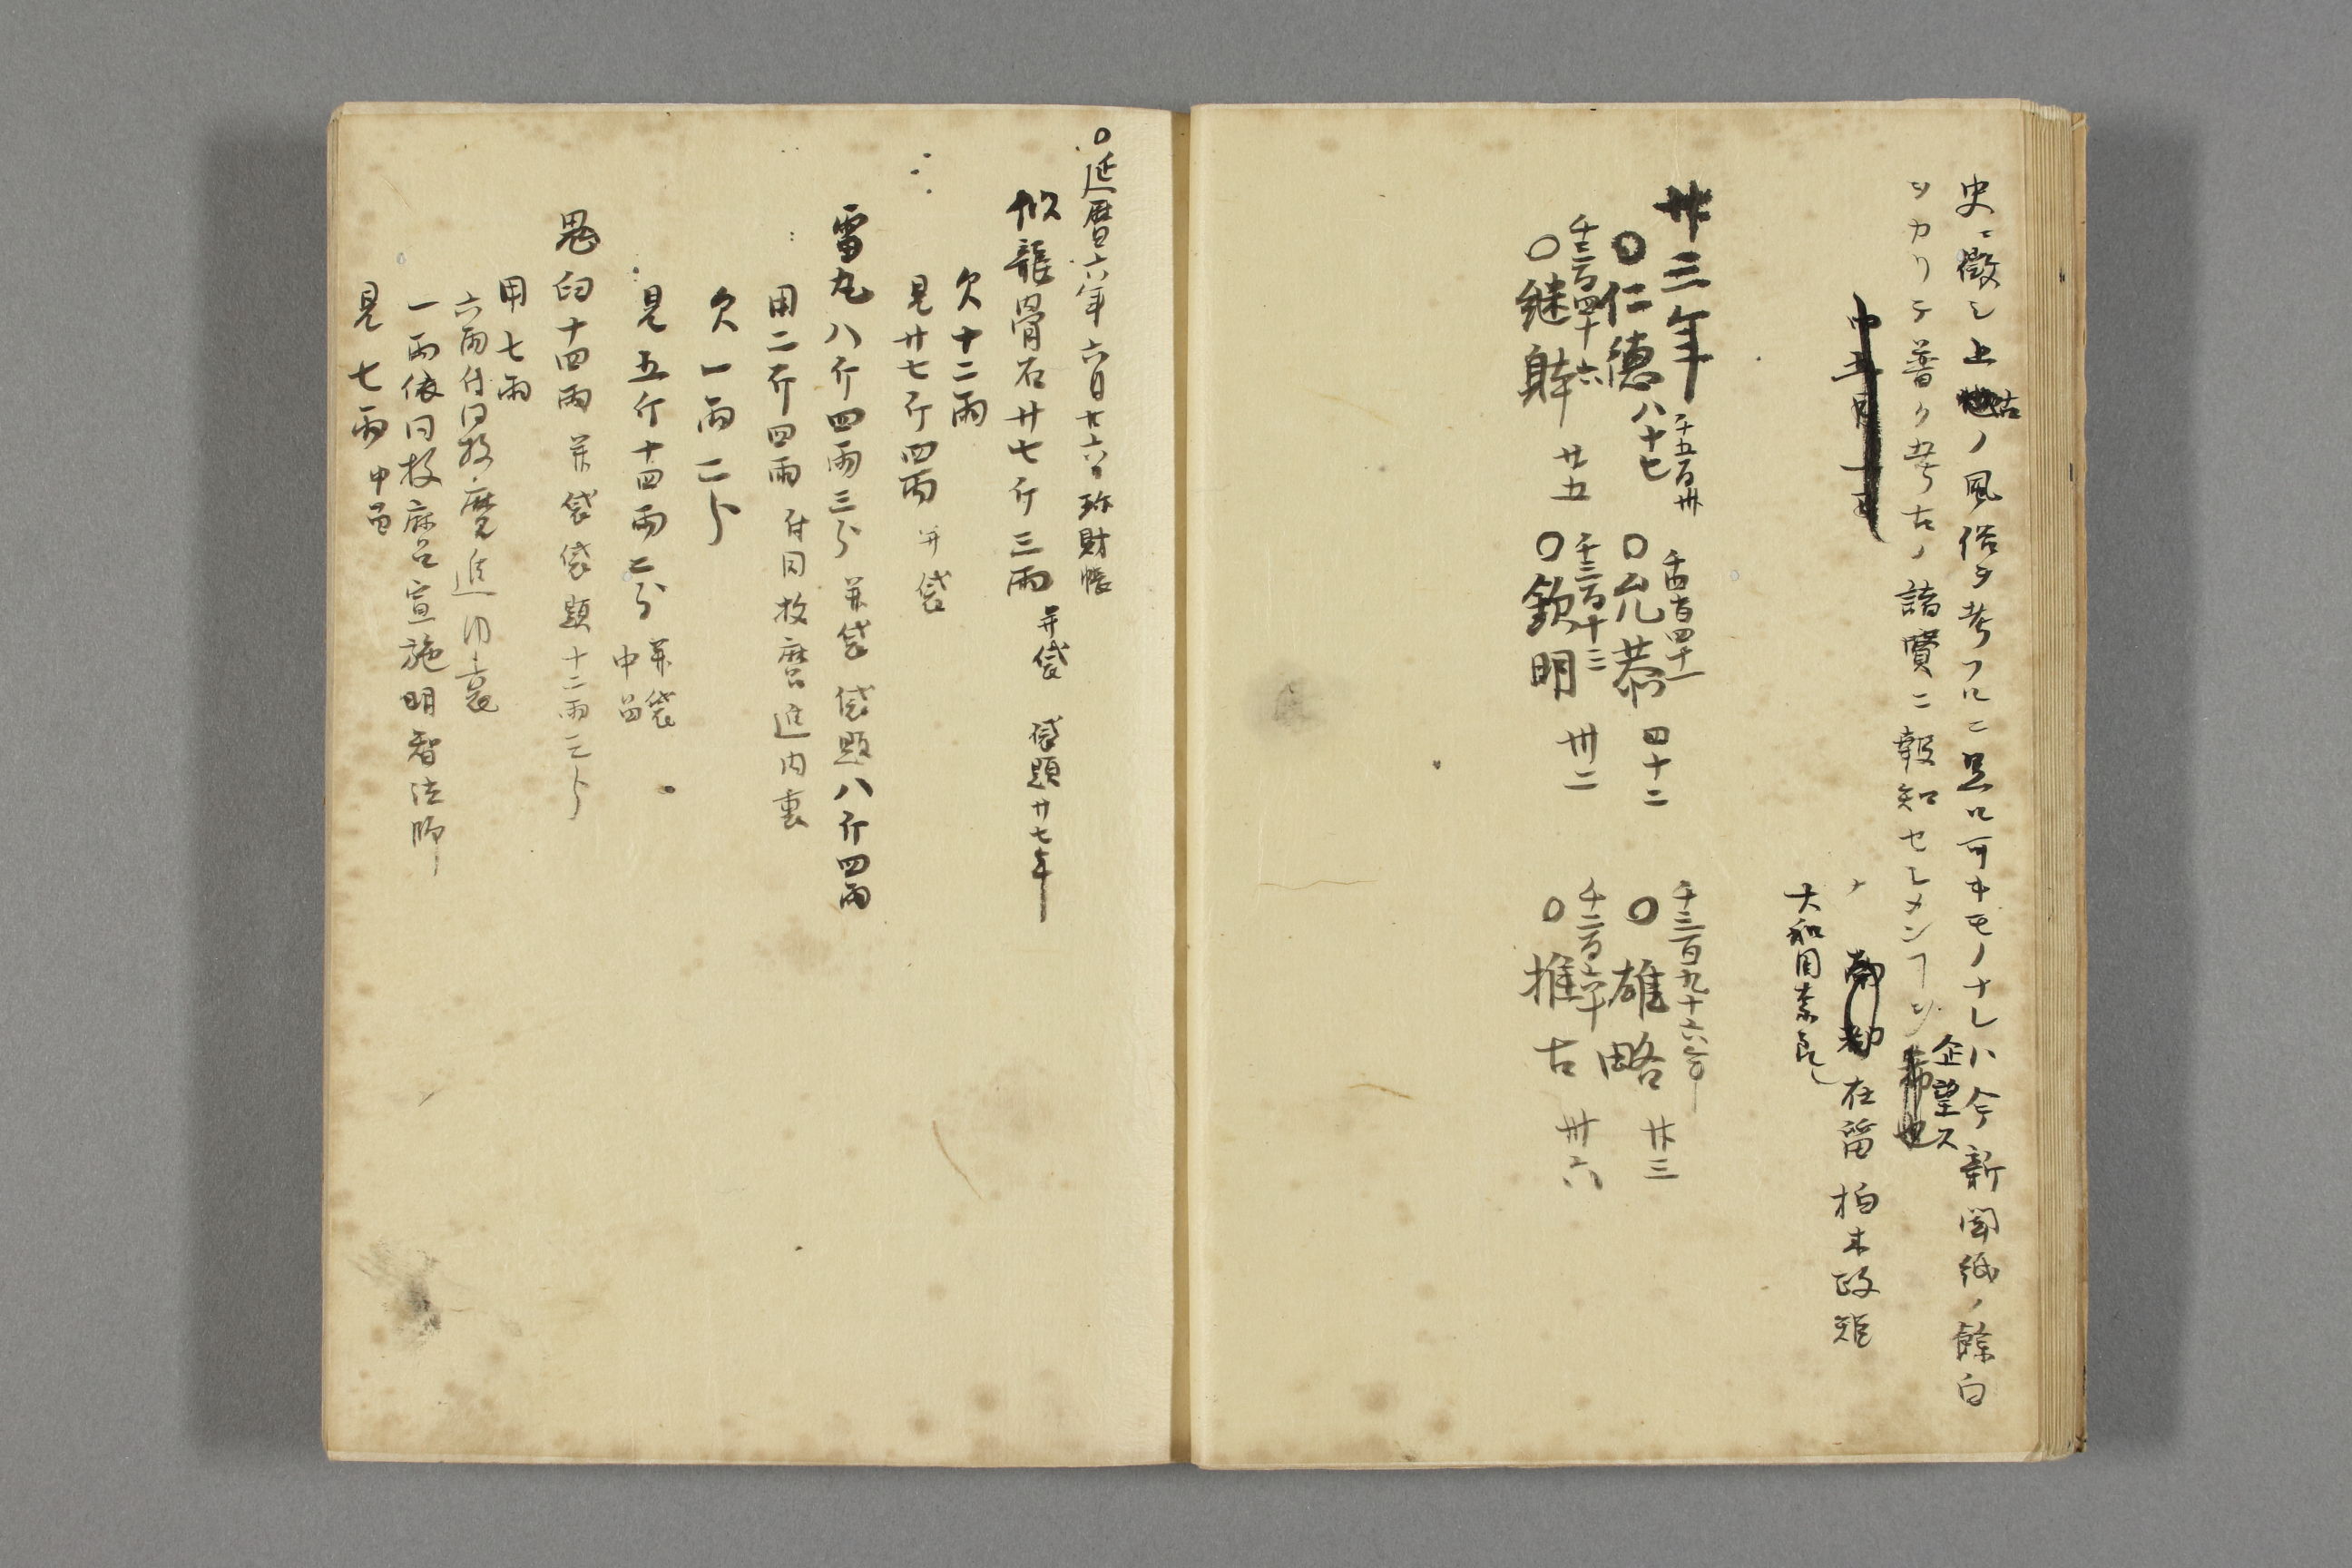 史ニ徴シ上古ノ風俗ヲ考フルニ足ル可キモノナレハ今新聞紙ノ餘白
ヲカリテ普ク考古ノ諸賢ニ報知セシメンヿヲ企望ス
在留 柏木政矩
大和国奈良
卅三年
千五百卅
○仁徳 八十七
千四百四十一
○允恭 四十二
千三百九十六年
○雄略 廿三
千三百四十六
○継体 廿五
千三百十三
○欽明 卅二
千二百六十
○推古 卅六
○延暦六年六月廿六日珎財帳
似龍骨石廿七斤三兩 并袋 袋題廿七斤
欠十二兩
見廿七斤四兩 并袋
雷丸八斤四兩三分 并袋 袋題八斤四兩
用二斤四兩 付同牧麿進内裏
欠一兩二分
見五斤十四兩二分 并袋 中品
鬼臼十四兩 并袋 袋題十二兩三分
用七兩
六兩付同牧麿進内裏
一兩依同牧麻呂宣施明智法師
見七兩 中品